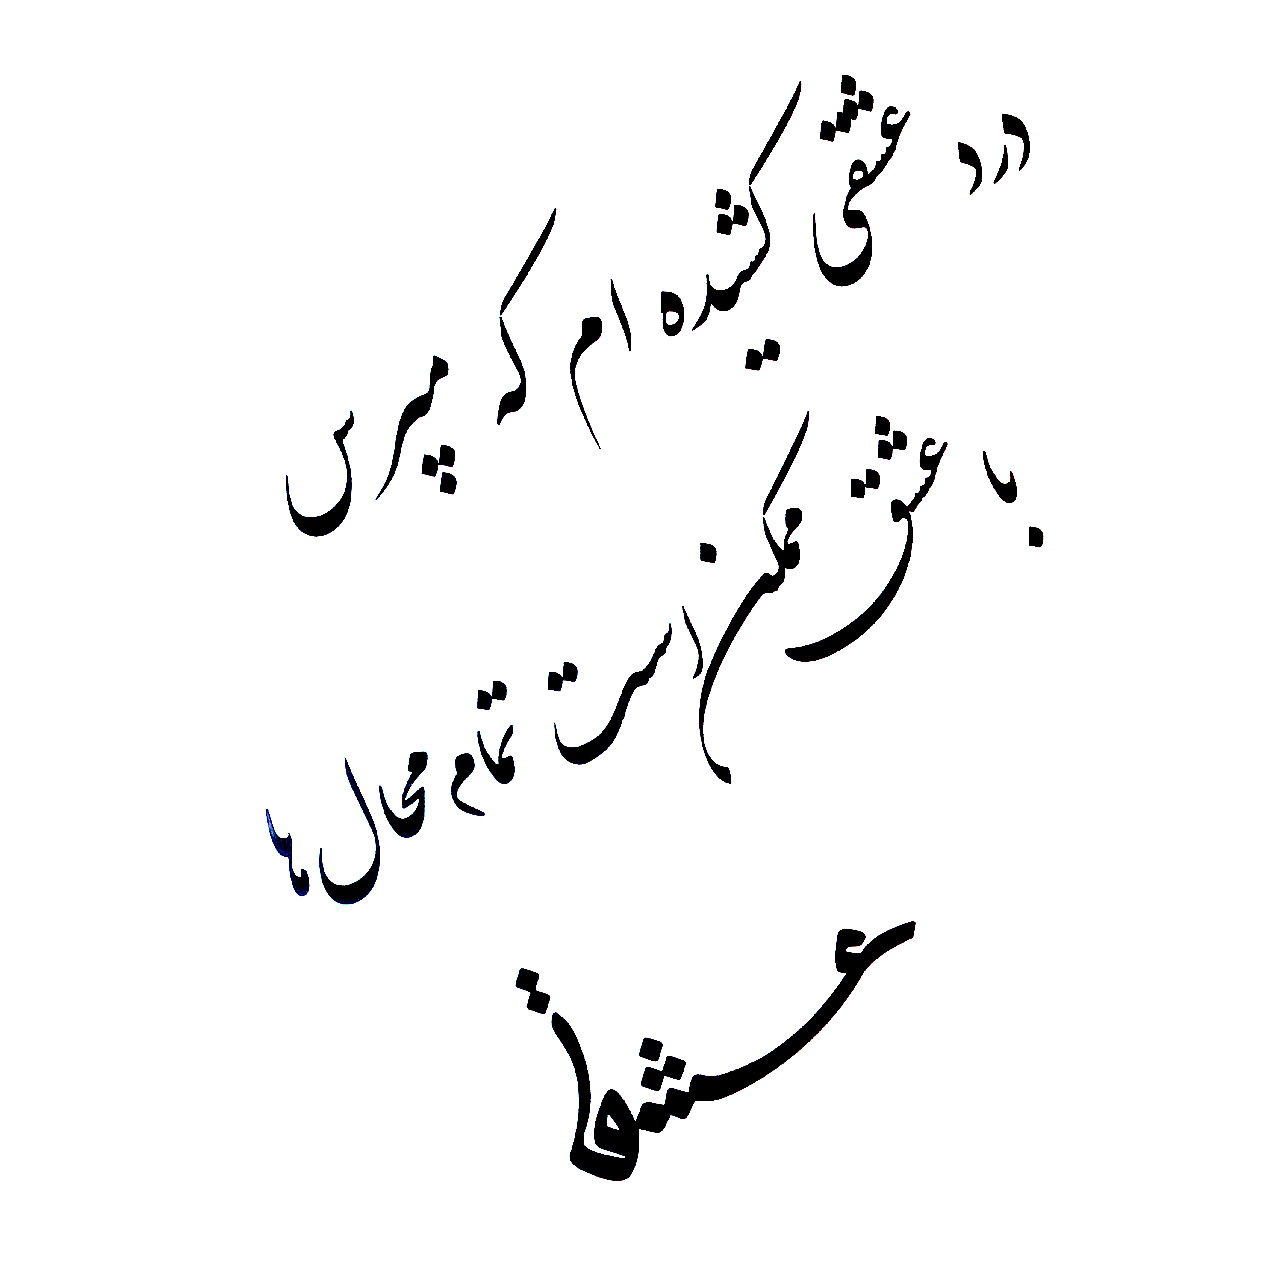 درد عشقی کشیده ام که مپرس
با عشق ممکن است تمام محال ها
عشق